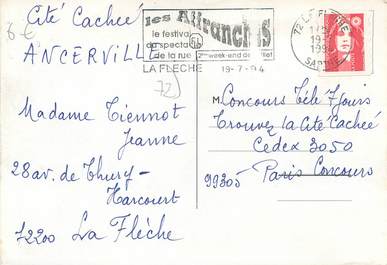 Cité Cacheé
6€
ANCERVILLE
les Affranchis
le festival
du spectacle
de la rue
2ème week-end de juillet
LA FLECHE 19-7-94
72 LA FLECHE
19
199
SARTHE
72
Madame Tiennot
Jeanne
28 av. de Thury-
Harcourt
72200 La Flèche
M
Concours Télé 7 Jours
Trouvez la Cité Cacheé
Cedex 3050
99305 Paris Concours